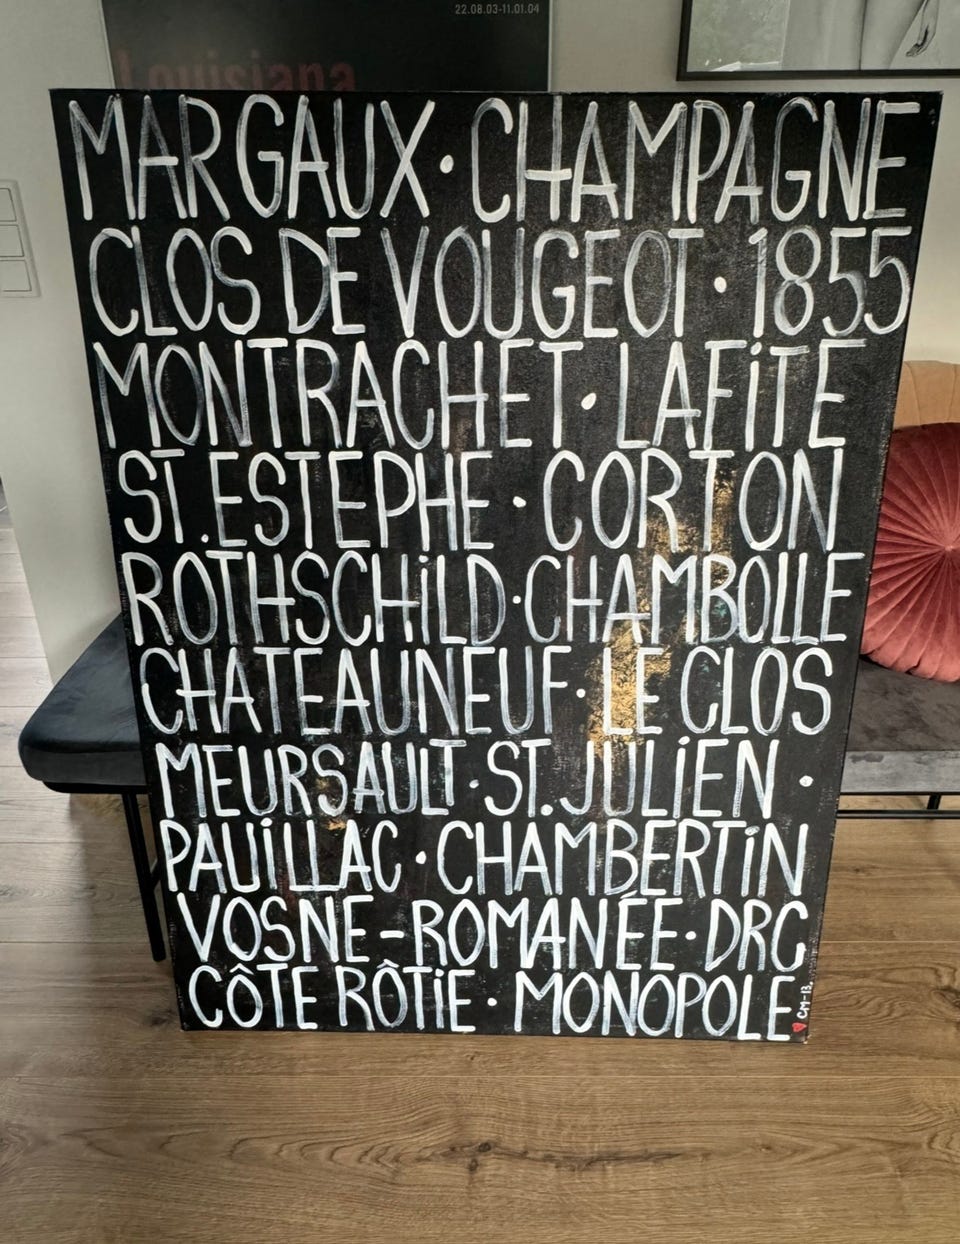 22.08.03-11.01.04
Louisiana
MARGAUX · CHAMPAGNE
CLOS DE VOUGEOT · 1855
MONTRACHET · LAFiTE
ST. ESTEPHE · CORTON
ROTHSCHiLD · CHAMBOLLE
CHATEAUNEUF · LE CLOS
MEURSAULT · ST. JULiEN ·
PAUiLLAC · CHAMBERTiN
VOSNE-ROMANÉE · DRC
CÔTE RÔTiE · MONOPOLE
CM-13.